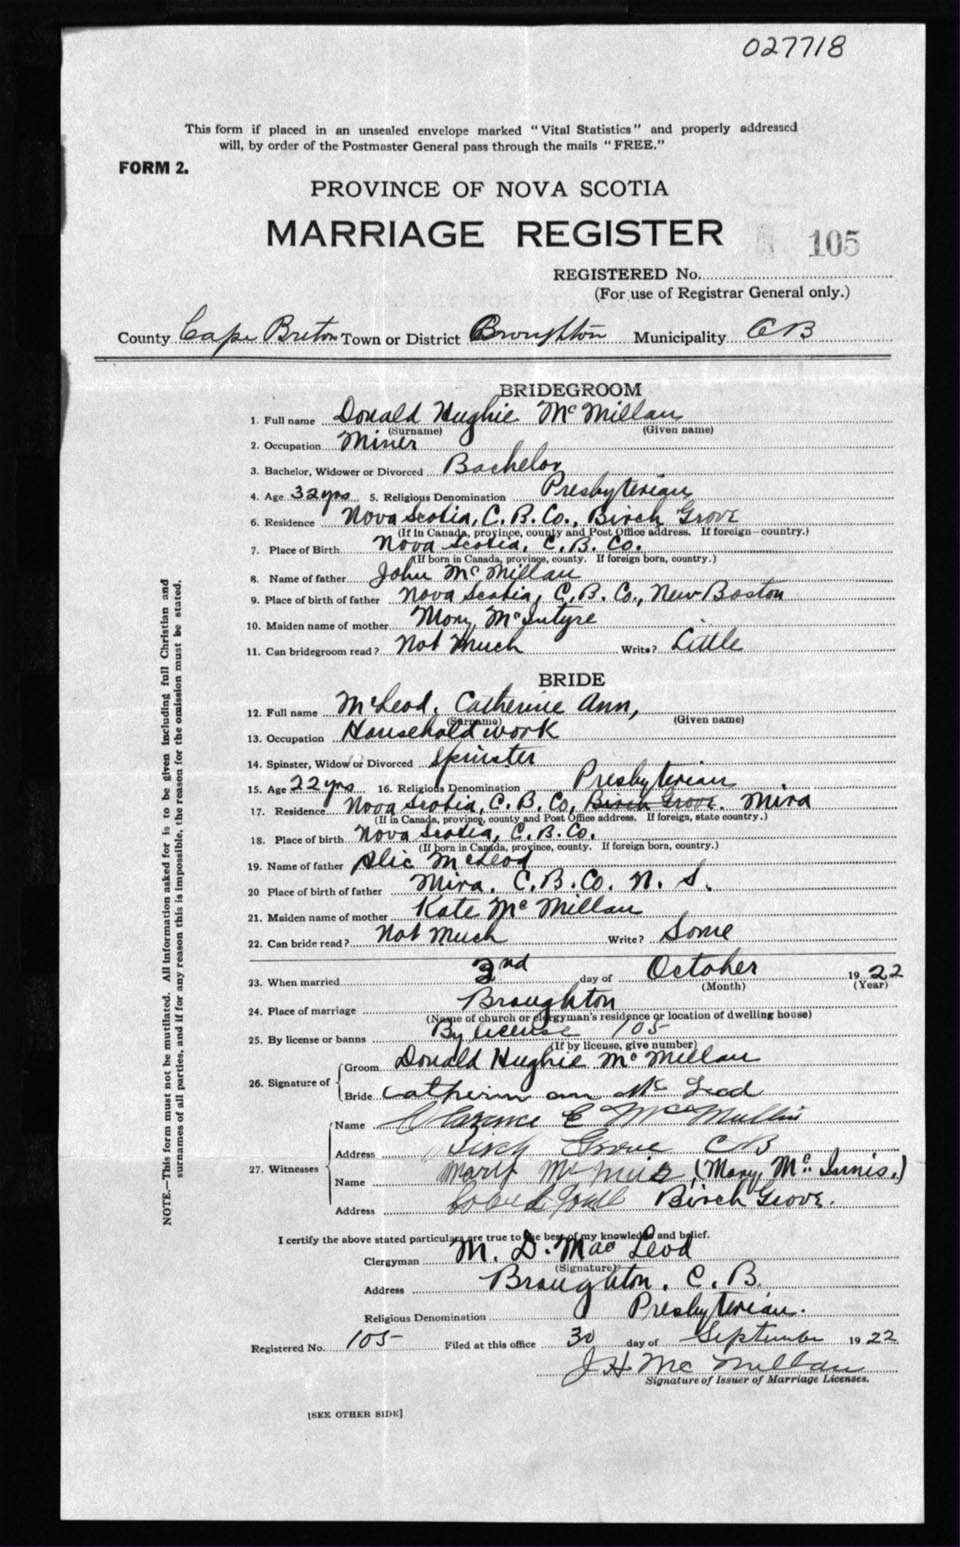 027718
This form if placed in an unsealed envelope marked "Vital Statistics" and properly addressed
will, by order of the Postmaster General pass through the mails "FREE."
FORM 2.
PROVINCE OF NOVA SCOTIA
MARRIAGE REGISTER
105
REGISTERED No.
(For use of Registrar General only.)
County Cape Breton Town or District Broughton Municipality CB
BRIDEGROOM
1. Full name Donald Hughie McMillan
(Surname) (Given name)
2. Occupation Miner
3. Bachelor, Widower or Divorced Bachelor
4. Age 32 yrs 5. Religious Denomination Presbyterian
6. Residence Nova Scotia, C. B. Co., Birch Grove
(If in Canada, province, county and Post Office address. If foreign—country.)
7. Place of Birth Nova Scotia, C. B. Co.
(If born in Canada, province, county. If foreign born, country.)
8. Name of father John McMillan
9. Place of birth of father Nova Scotia, C. B. Co., New Boston
10. Maiden name of mother Mary McIntyre
11. Can bridegroom read? Not Much Write? Little
BRIDE
12. Full name McLeod, Catherine Ann,
(Surname) (Given name)
13. Occupation Household work
14. Spinster, Widow or Divorced Spinster
15. Age 22 yrs 16. Religious Denomination Presbyterian
17. Residence Nova Scotia, C. B. Co, Birch Grove. Mira
(If in Canada, province, county and Post Office address. If foreign, state country.)
18. Place of birth Nova Scotia, C. B. Co.
(If born in Canada, province, county. If foreign born, country.)
19. Name of father Alic McLeod
20 Place of birth of father Mira. C. B. Co. N. S.
21. Maiden name of mother Kate McMillan
22. Can bride read? Not Much Write? Some
23. When married 2nd day of October 1922
(Month) (Year)
24. Place of marriage Broughton
(Name of church or clergyman's residence or location of dwelling house)
25. By license or banns By license 105
(If by license, give number)
26. Signature of
Groom Donald Hughie McMillan
Bride Catherin ann McLeod
27. Witnesses
Name Clarence E McMullin
Address Birch Grove CB
Name Mary (Mary McInnis.)
Address Birch Grove.
I certify the above stated particulars are true to the best of my knowledge and belief.
Clergyman M. D. MacLeod
(Signature)
Address Broughton. C. B.
Religious Denomination Presbyterian.
Registered No. 105 Filed at this office 30 day of September 1922
J H McMillan
Signature of Issuer of Marriage Licenses.
[SEE OTHER SIDE]
NOTE.—This form must not be mutilated. All information asked for is to be given including full Christian and
surnames of all parties, and if for any reason this is impossible, the reason for the omission must be stated.